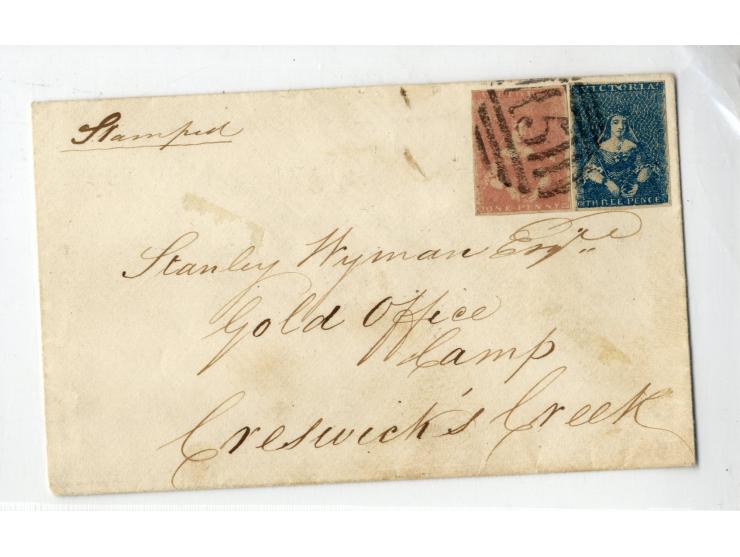 Stamped
VICTORIA
15
ONE PENNY
THREE PENCE
Stanley Wyman Esqre
Gold Office
Camp
Creswick's Creek